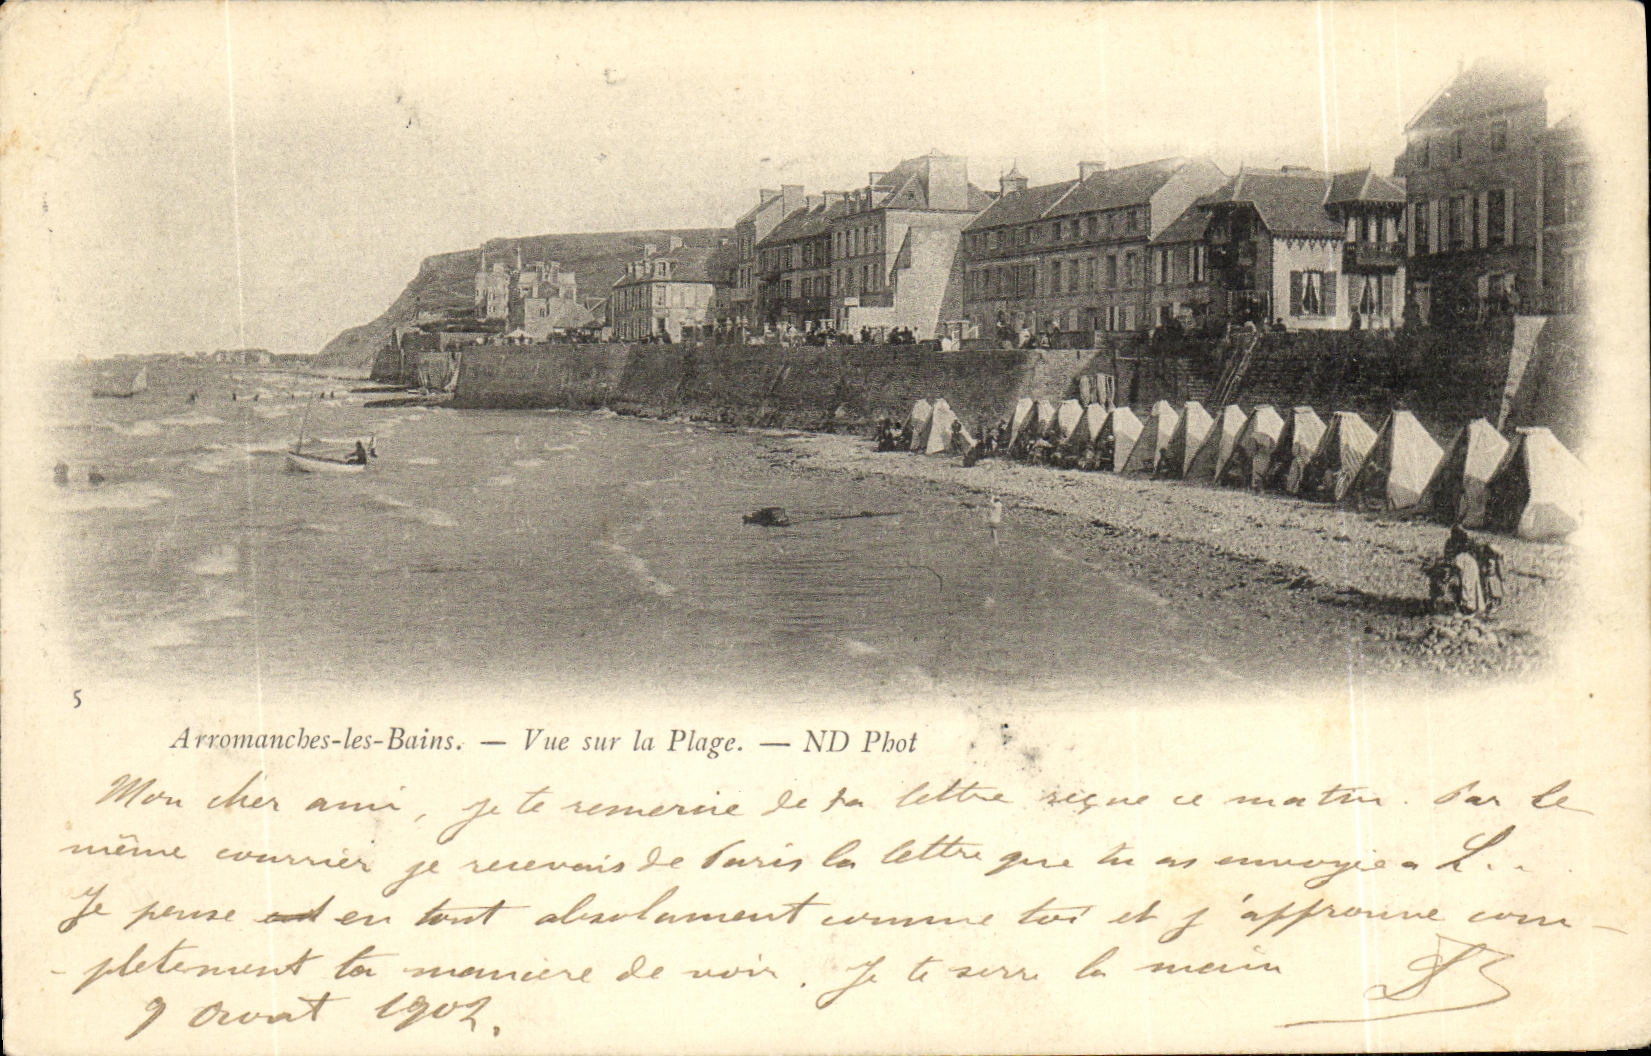 5
Arromanches-les-Bains. — Vue sur la Plage. — ND Phot
Mon cher ami, je te remercie de ta lettre reçue ce matin. Par le
même courrier je recevais de Paris la lettre que tu as envoyée a L..
Je pense en tout absolument comme toi et j'approuve com-
-pletement ta maniere de voir. Je te serre la main
9 Aout 1902.